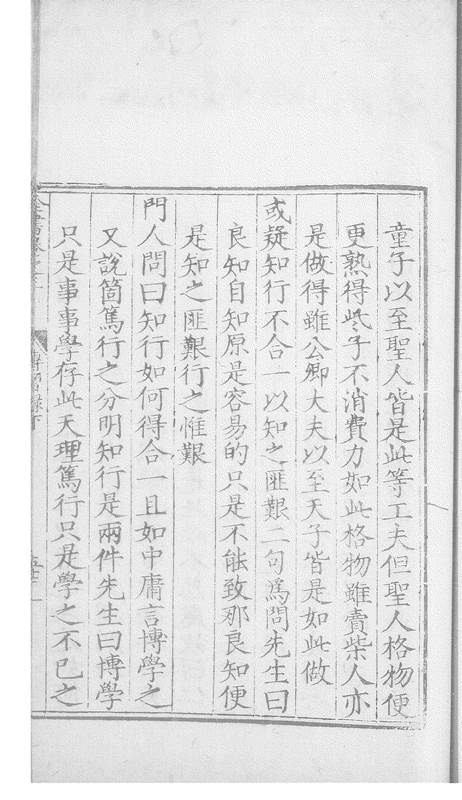 童子以至聖人皆是此等工夫但聖人格物便
更熟得些子不消費力如此格物雖賣柴人亦
是做得雖公卿大夫以至天子皆是如此做
或疑知行不合一以知之匪艱二句爲問先生曰
良知自知原是容易的只是不能致那良知便
是知之匪艱行之惟艱
門人問曰知行如何得合一且如中庸言博學之
又說箇篤行之分明知行是兩件先生曰博學
只是事事學存此天理篤行只是學之不已之
傳習錄下